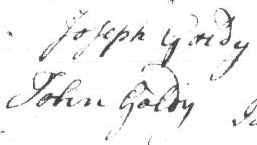 Joseph Goldy
John Goldy